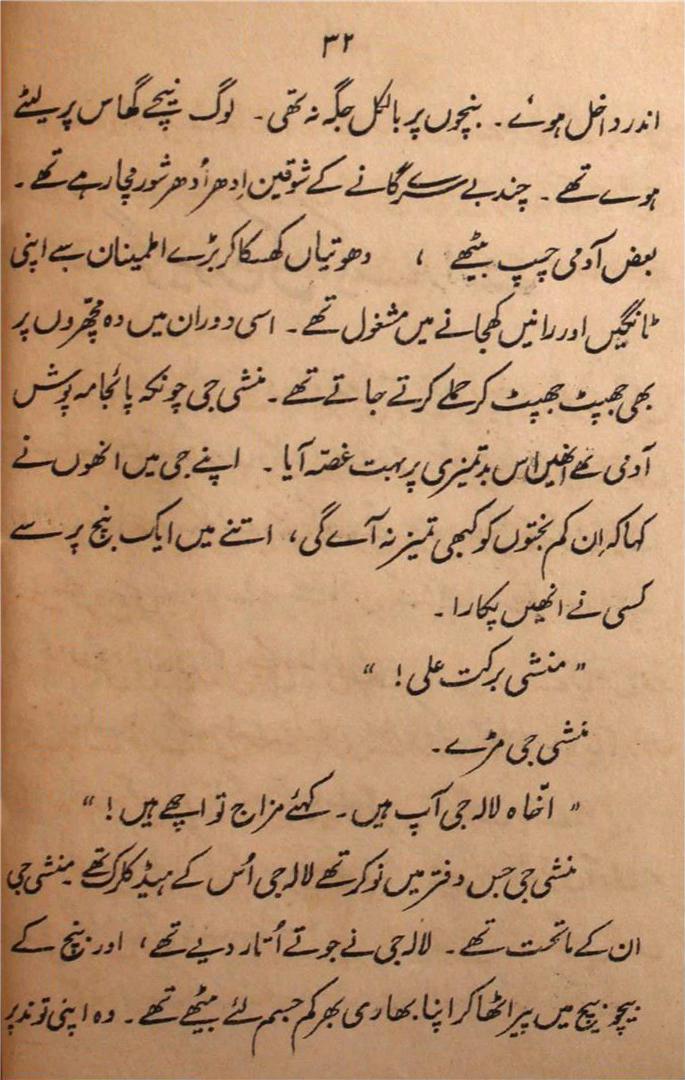 ۳۲
اندر داخل ہوئے۔ بنچوں پر بالکل جگہ نہ تھی۔ لوگ نیچے گھاس پر لیٹے
ہوے تھے۔ چند بے سرے گانے کے شوقین اِدھر اُدھر شور مچا رہے تھے۔
بعض آدمی چپ بیٹھے ، دھوتیاں کھسکا کر بڑے اطمینان سے اپنی
ٹانگیں اور رانیں کھجانے میں مشغول تھے۔ اسی دوران میں وہ مچھروں پر
بھی جھپٹ جھپٹ کر حملے کرتے جاتے تھے۔ منشی جی چونکہ پائجامہ پوش
آدمی تھے انھیں اس بدتمیزی پر بہت غصّہ آیا۔ اپنے جی میں انھوں نے
کہا کہ اِن کم بختوں کو کبھی تمیز نہ آے گی، اتنے میں ایک بنچ پر سے
کسی نے انھیں پکارا۔
"منشی برکت علی!"
منشی جی مڑے۔
"اخّاہ لالہ جی آپ ہیں۔ کہئے مزاج تو اچھے ہیں!"
منشی جی جس دفتر میں نوکر تھے لالہ جی اُس کے ہیڈ کلرک تھے منشی جی
ان کے ماتحت تھے۔ لالہ جی نے جوتے اُتار دیے تھے، اور بنچ کے
بیچو بیچ میں پیر اٹھا کر اپنا بھاری بھرکم جسم لئے بیٹھے تھے۔ وہ اپنی توند پر